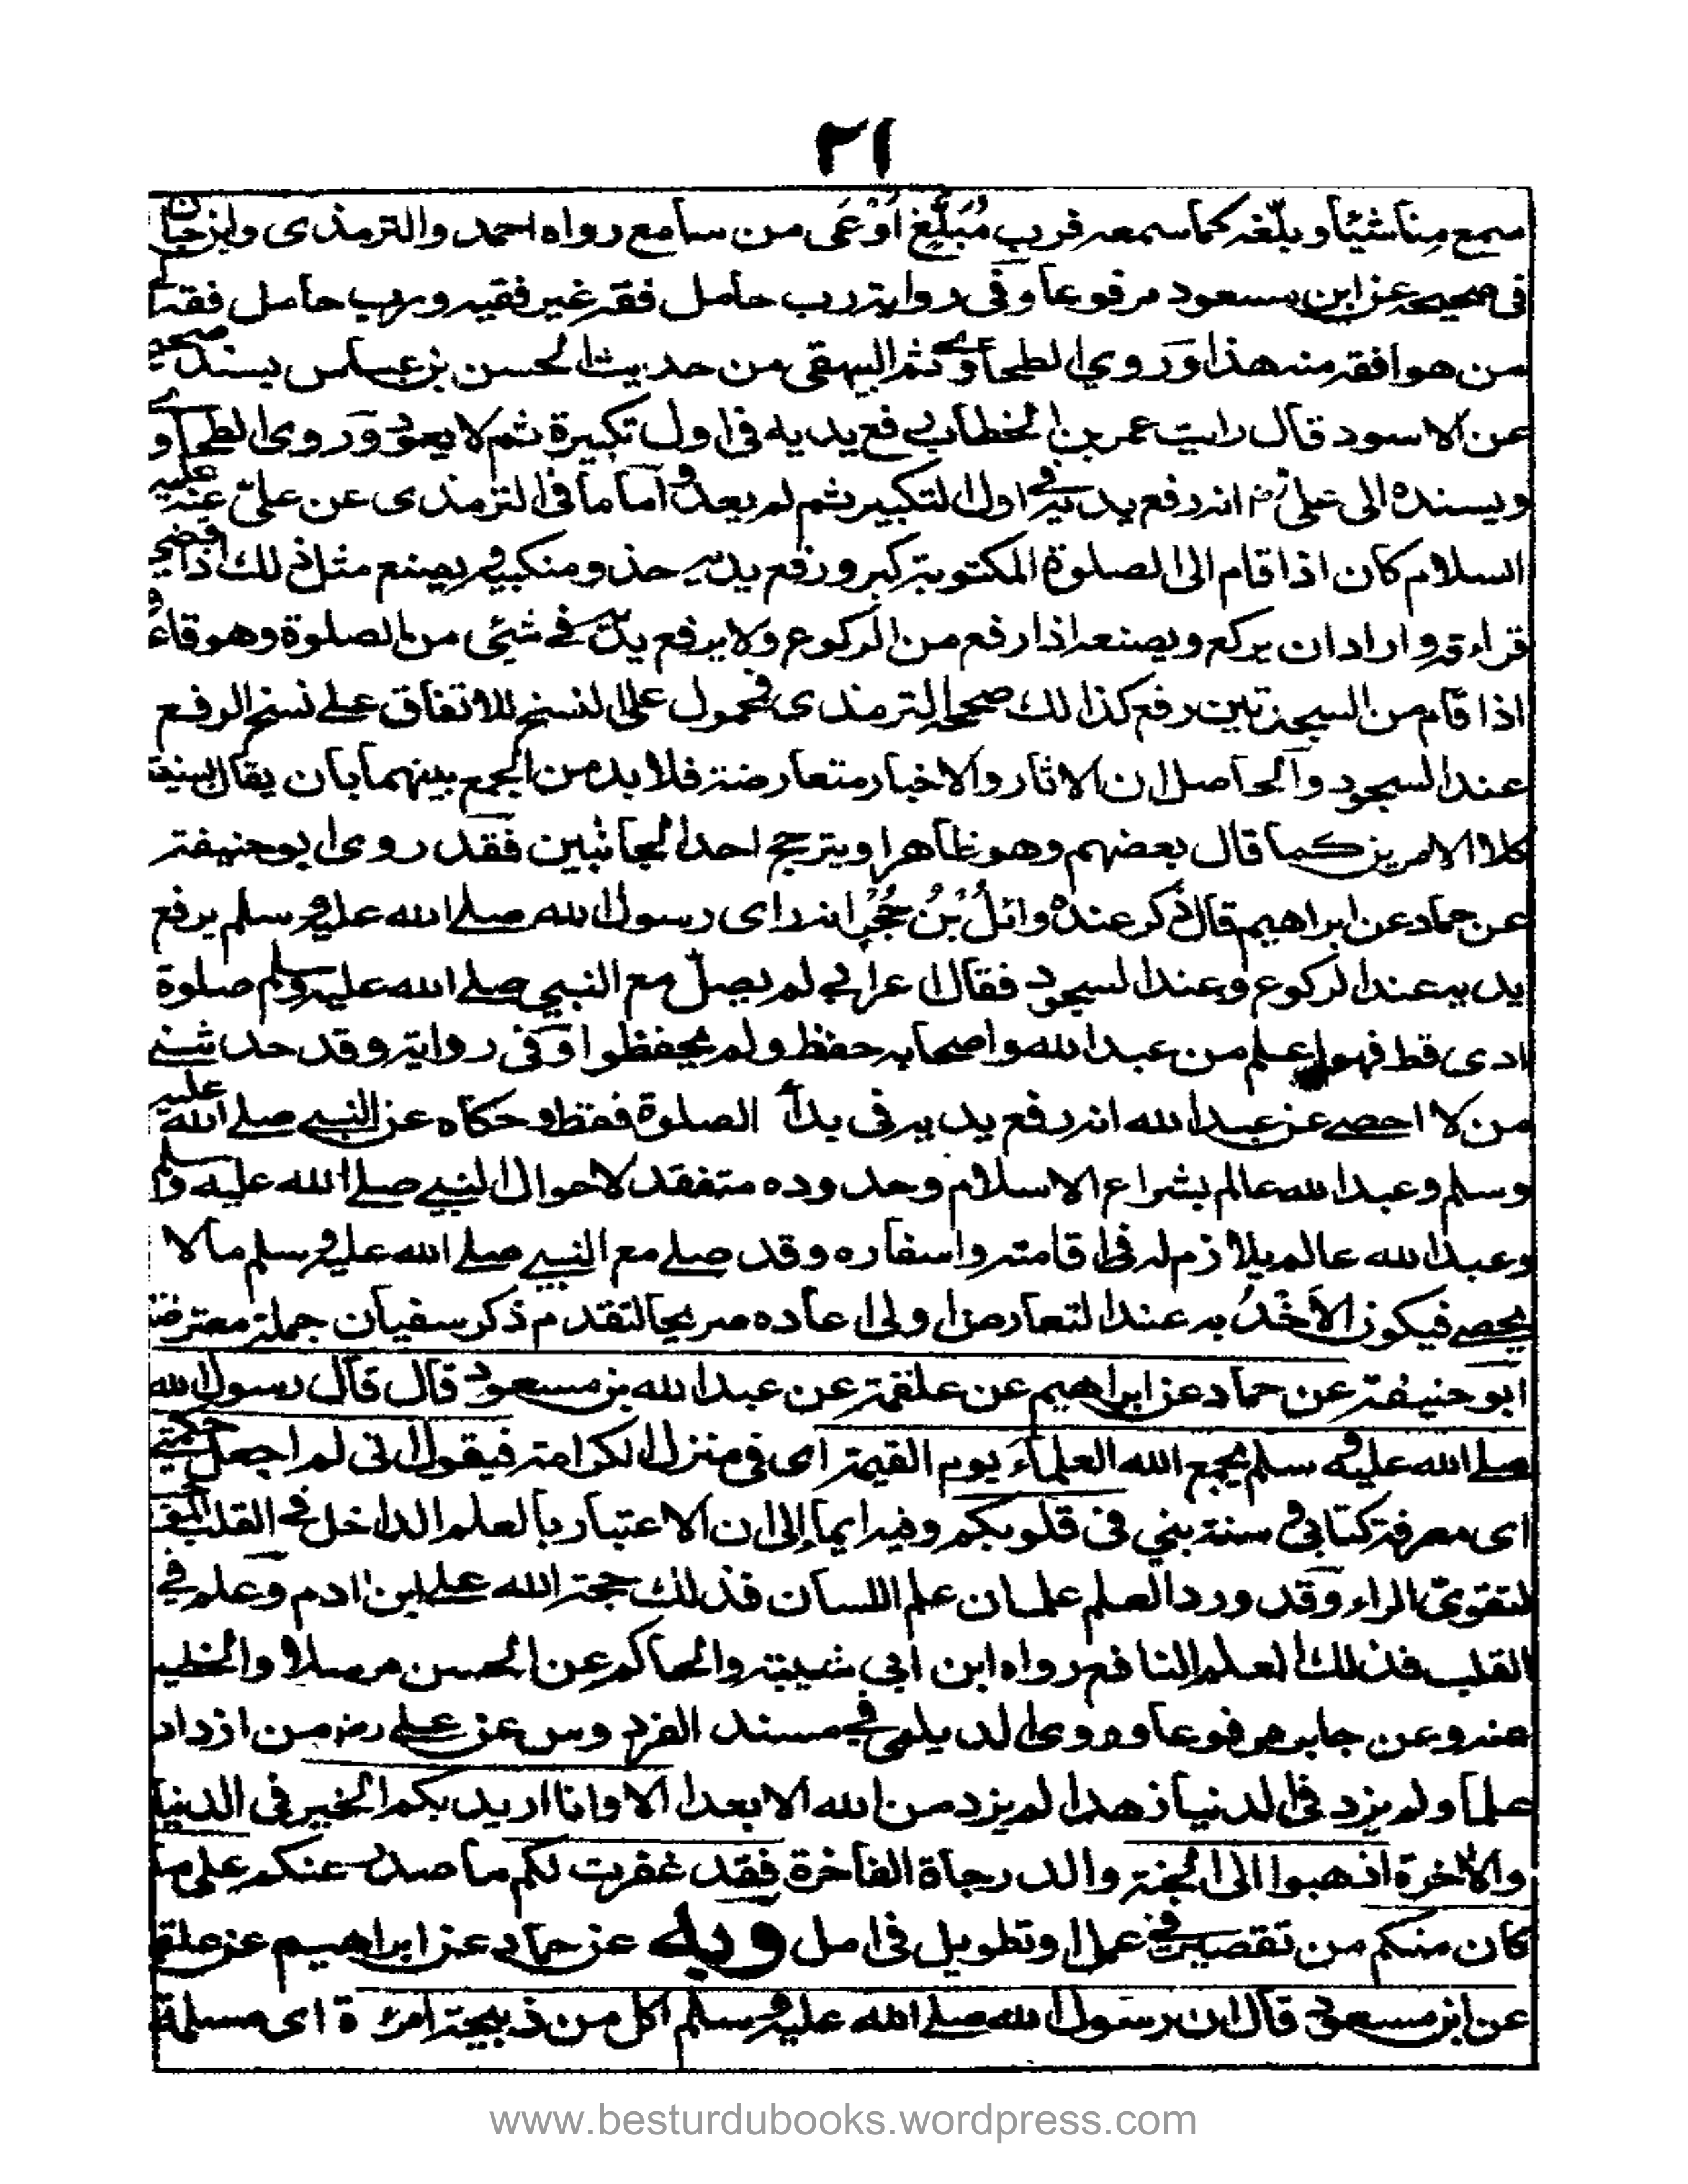 ٢١
سمع مِنا شيئا وبلّغه كما سمعه فرب مُبَلَّغ اَوْعَى من سامع رواه احمد والترمذى وابن حبان
فى صحيحه عن ابن مسعود مرفوعا وفى رواية رب حامل فقه غير فقيه ورب حامل فقه الى
من هو افقه منه هذا وروى الطحاوى ثم البيهقى من حديث الحسن بن عياش بسند صحيح
عن الاسود قال رايت عمر بن الخطاب يرفع يديه فى اول تكبيرة ثم لا يعود وروى الطحاوى
ويسنده الى على رض انه رفع يديه فى اول التكبير ثم لم يعد واما ما فى الترمذى عن على عنه عليه
السلام كان اذا قام الى الصلوة المكتوبة كبر ورفع يديه حذو منكبيه ويصنع مثل ذلك اذا قضى
قراءته واراد ان يركع ويصنعه اذا رفع من الركوع ولا يرفع يديه فى شئى من الصلوة وهو قاعد و
اذا قام من السجدتين رفع كذالك صححه الترمذى فمحمول على النسخ للاتفاق على نسخ الرفع
عند السجود والحاصل ان الاثار والاخبار متعارضة فلا بد من الجمع بينهما بان يقال بسنية
كلا الامرين كما قال بعضهم وهو ظاهر او يترجح احد الجانبين فقد روى ابو حنيفة
عن حماد عن ابراهيم قال ذكر عنده وائلُ بْنُ حُجْرٍ انه راى رسول الله صلى الله عليه وسلم يرفع
يديه عند الركوع وعند السجود فقال اعرابى لم يصلّ مع النبى صلى الله عليه وسلم صلوة
ادى قط فهو اعلم من عبد الله واصحابه حفظ ولم يحفظوا وفى رواية وقد حدثنى
من لا احصى عن عبد الله انه رفع يديه فى بدأ الصلوة فقط وحكاه عن النبى صلى الله عليه
وسلم وعبد الله عالم بشرائع الاسلام وحدوده متفقد لاحوال النبى صلى الله عليه وسلم
وعبد الله عالم يلازم له فى اقامته واسفاره وقد صلى مع النبى صلى الله عليه وسلم ما لا
يحصى فيكون الاَخْذُ به عند التعارض اولى اعاده صريحا لتقدم ذكر سفيان جملة معترضة
ابو حنيفة عن حماد عن ابراهيم عن علقمة عن عبد الله بن مسعود قال قال رسول الله
صلى الله عليه وسلم يجمع الله العلماء يوم القيمة اى فى منزل الكرامة فيقول انى لم اجعل حكمتى
اى معرفة كتابى و سنة نبيى فى قلوبكم وفيه ايما إلى ان الاعتبار بالعلم الداخل فى القلب
لتقوى الراء وقد ورد العلم علمان علم اللسان فذلك حجة الله على ابن ادم وعلم فى
القلب فذلك العلم النافع رواه ابن ابى شيبة والحاكم عن الحسن مرسلا والخطيب
عنه وعن جابر مرفوعا وروى الديلمى فى مسند الفردوس عن على رض من ازداد
علما ولم يزد فى الدنيا زهدا لم يزد من الله الا بعدا الا وانا اريد بكم الخير فى الدنيا
والاخرة اذهبوا الى الجنة والدرجاة الفاخرة فقد غفرت لكم ما صدر عنكم على ما
كان منكم من تقصير فى عمل او تطويل فى امل وبه عن حماد عن ابراهيم عن علقمة
عن ابن مسعود قال ان رسول الله صلى الله عليه وسلم اكل من ذبيحة امرءة اى مسلمة
www.besturdubooks.wordpress.com